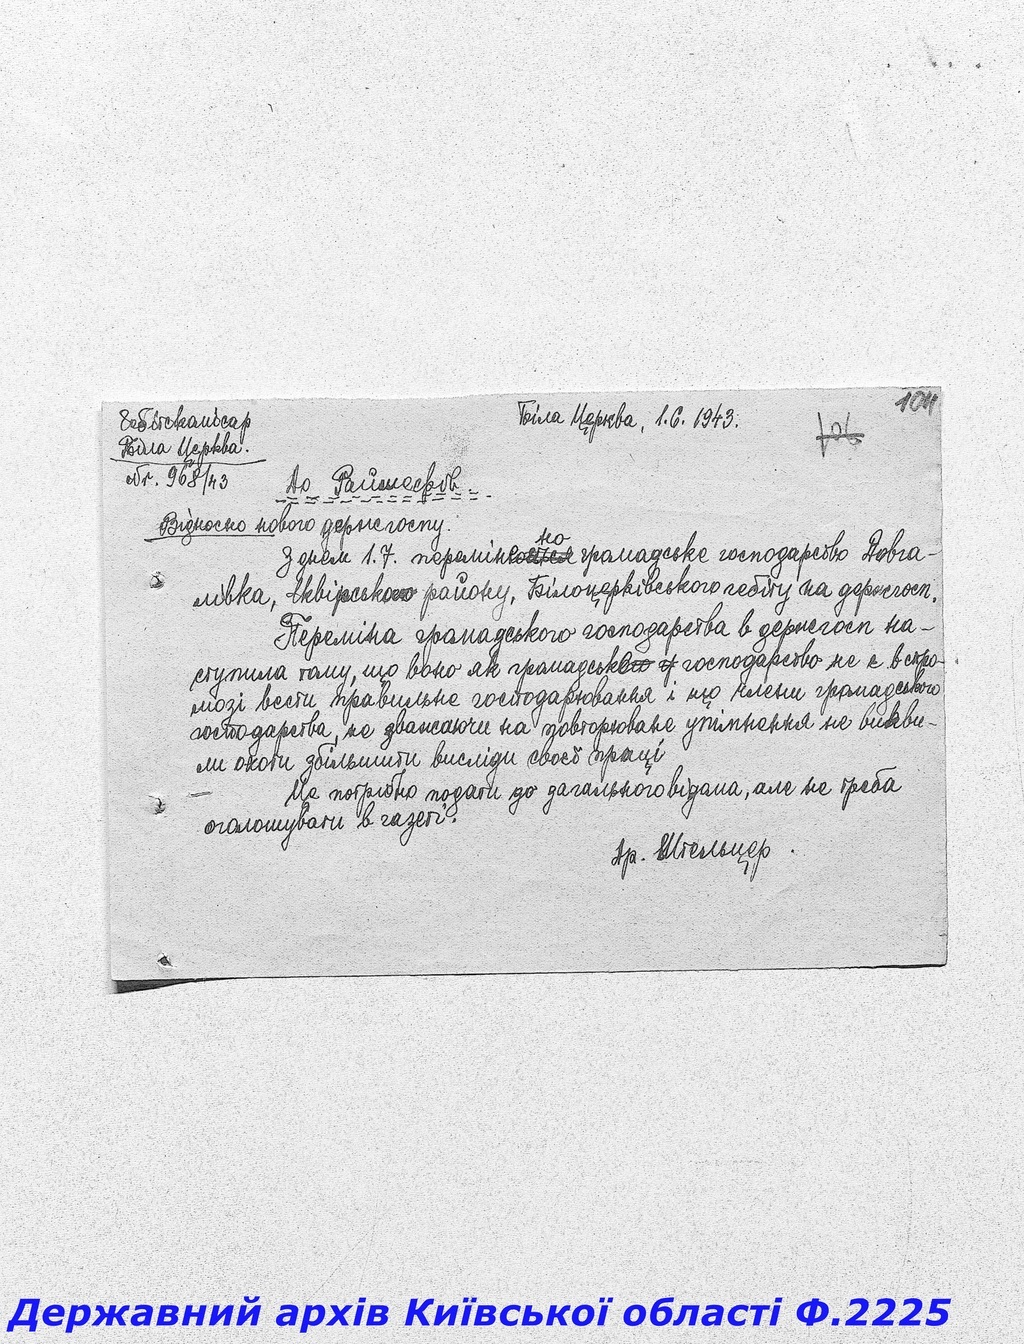 104
Гебітскомісар
Біла Церква, 1.6.1943.
Біла Церква.
Nr. 968/43
До Райшефів.
Відносно нового держгоспу.
З днем 1.7. перемінено громадське господарство Довга-
лівка, Сквірського району, Білоцерківського гебіту на держгосп.
Переміна громадського господарства в держгосп на-
ступила тому, що воно як громадське господарство не є в спро-
мозі вести правильне господарювання і що члени громадського
господарства, не зважаючи на повторюване упімнення не вияви-
ли охоти збільшити висліди своєї праці
Це потрібно подати до загального відома, але не треба
оголошувати в газеті.
Др. Штельцер.
Державний архів Київської області Ф.2225